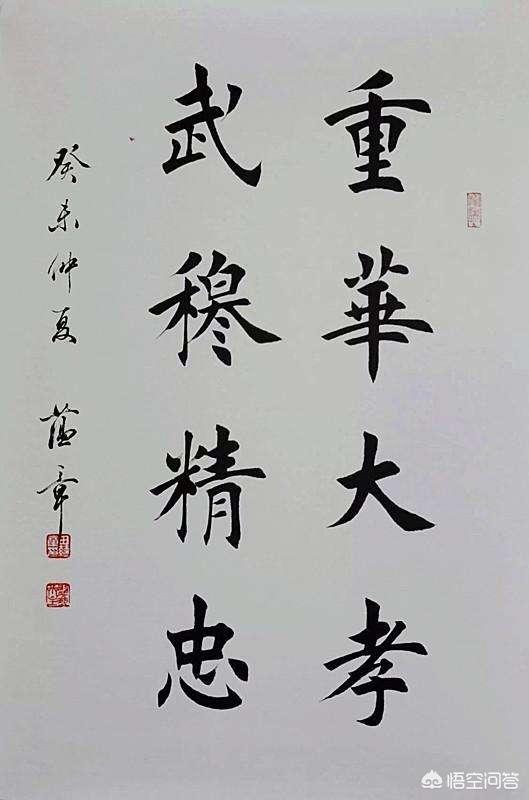 重華大孝
武穆精忠
癸未仲夏
蘊章
悟空问答